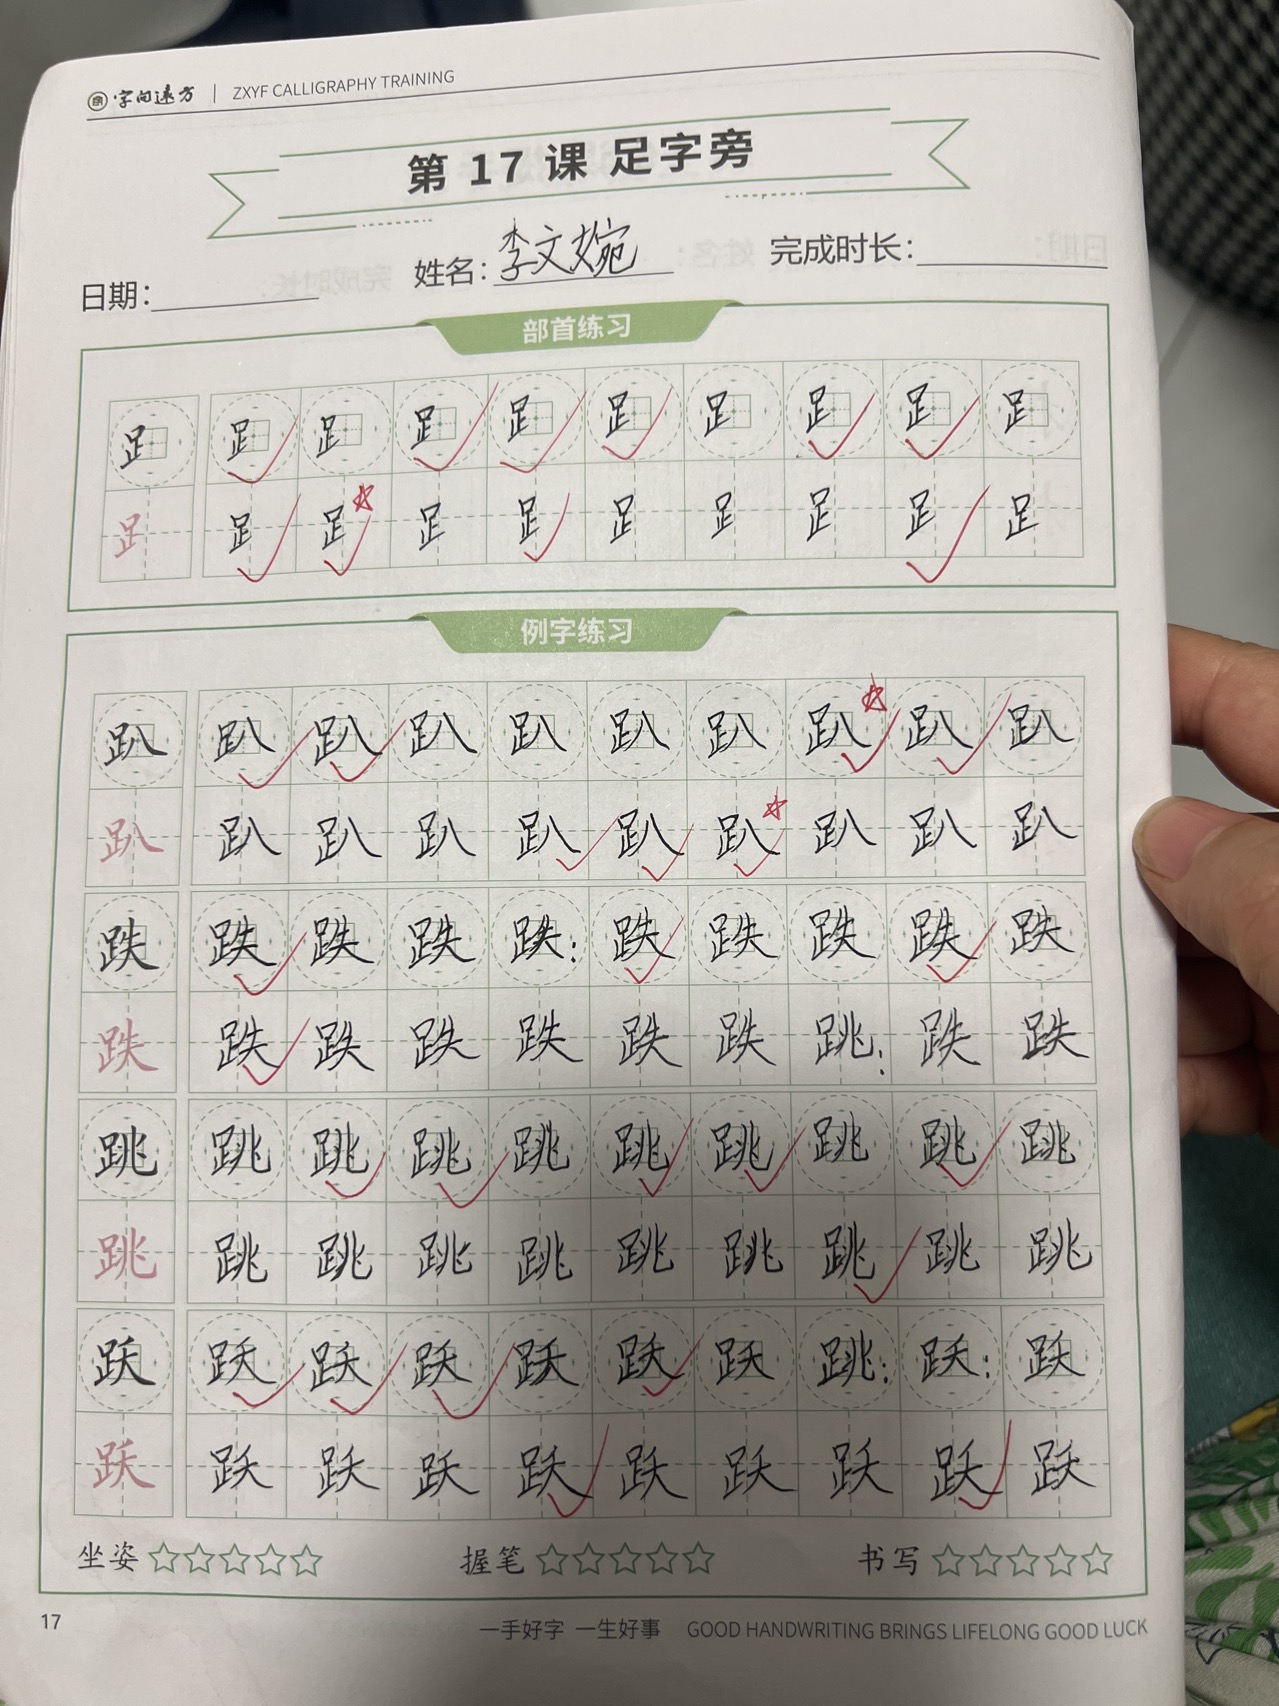 字间远方 | ZXYF CALLIGRAPHY TRAINING
第 17 课 足字旁
日期： 姓名：李文婉 完成时长：
部首练习
𧾷 𧾷 𧾷 𧾷 𧾷 𧾷 𧾷 𧾷 𧾷 𧾷
𧾷 𧾷 𧾷 𧾷 𧾷 𧾷 𧾷 𧾷 𧾷 𧾷
例字练习
趴 趴 趴 趴 趴 趴 趴 趴 趴 趴
趴 趴 趴 趴 趴 趴 趴 趴 趴 趴
跌 跌 跌 跌 跌 跌 跌 跌 跌 跌
跌 跌 跌 跌 跌 跌 跌 跳 跌 跌
跳 跳 跳 跳 跳 跳 跳 跳 跳 跳
跳 跳 跳 跳 跳 跳 跳 跳 跳 跳
跃 跃 跃 跃 跃 跃 跃 跳 跃 跃
跃 跃 跃 跃 跃 跃 跃 跃 跃 跃
坐姿 ☆☆☆☆☆ 握笔 ☆☆☆☆☆ 书写 ☆☆☆☆☆
17 一手好字 一生好事 GOOD HANDWRITING BRINGS LIFELONG GOOD LUCK